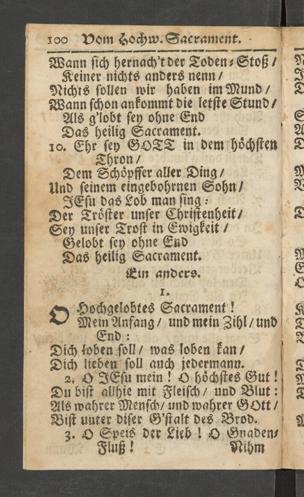 100 Vom Hochw. Sacrament.
Wann sich hernach't der Toden-Stoß/
Keiner nichts anders nenn/
Nichts sollen wir haben im Mund/
Wann schon ankommt die letste Stund/
Als g'lobt sey ohne End
Das heilig Sacrament.
10. Ehr sey GOTT in dem höchsten
Thron/
Dem Schöpffer aller Ding/
Und seinem eingebohrnen Sohn/
JEsu das Lob man sing:
Der Tröster unser Christenheit/
Sey unser Trost in Ewigkeit/
Gelobt sey ohne End
Das heilig Sacrament.
Ein anders.
1.
O Hochgelobtes Sacrament!
Mein Anfang/ und mein Zihl/ und
End:
Dich loben soll/ was loben kan/
Dich lieben soll auch jedermann.
2. O JEsu mein! O höchstes Gut!
Du bist allhie mit Fleisch/ und Blut:
Als wahrer Mensch/ und wahrer GOtt/
Bist unter diser G'stalt des Brod.
3. O Speis der Lieb! O Gnaden-
Fluß! Nihm